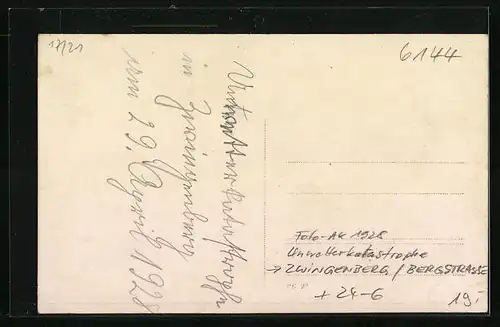 17/21
6144
Unwetterkatastrophe
in Zwingenberg
vom 29. April 1928
Foto-AK 1928
Unwetterkatastrophe
→ ZWINGENBERG / BERGSTRASSE
+ 24-6
19,-